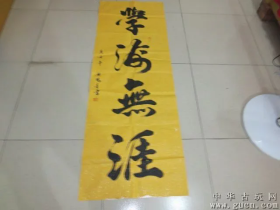 學海無涯
中华古玩网
www.gucn.com